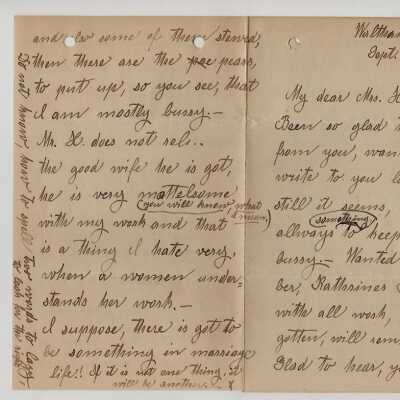 and also some of them stewed,
then there are the pears,
to put up, so you see, that
I am mostly bussy.-
Mr. H. does not
the good wife he is got,
he is very mattelsome
(you will know what
I mean,)
with my work and that
is a thing I hate very,
when a women under-
stands her work.-
I suppose, there is got to
be something in marriage
life!! If it is not one thing, it
will be another.
Do not know how to spell
two words to lazy
to look for the right
Waltham
Sept.
My dear Mrs. H
Been so glad t
from you, wan
write to you l
still it seems,
something
allways to keep
bussy.- Wanted
ber, Kathrines
with all work,
gotten, will rem
Glad to hear, y